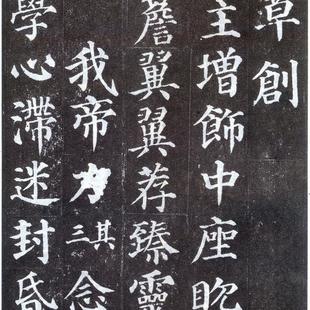 草創
主增飾中座眈
簷翼翼荐臻靈
我帝力其三念
學心滯迷封昏